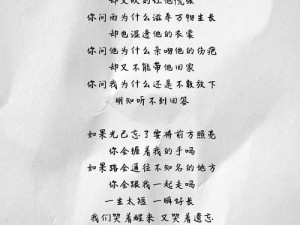 你问雨为什么滋养万物生长
却也湿透他的衣裳
你问他为什么亲吻他的伤疤
却又不能带他回家
你问我为什么还是不敢放下
明知听不到回答
如果光已忘了要将前方照亮
你会握着我的手吗
如果路会通往不知名的地方
你会跟我一起走吗
一生太短 一瞬好长
我们哭着醒来 又哭着遗忘